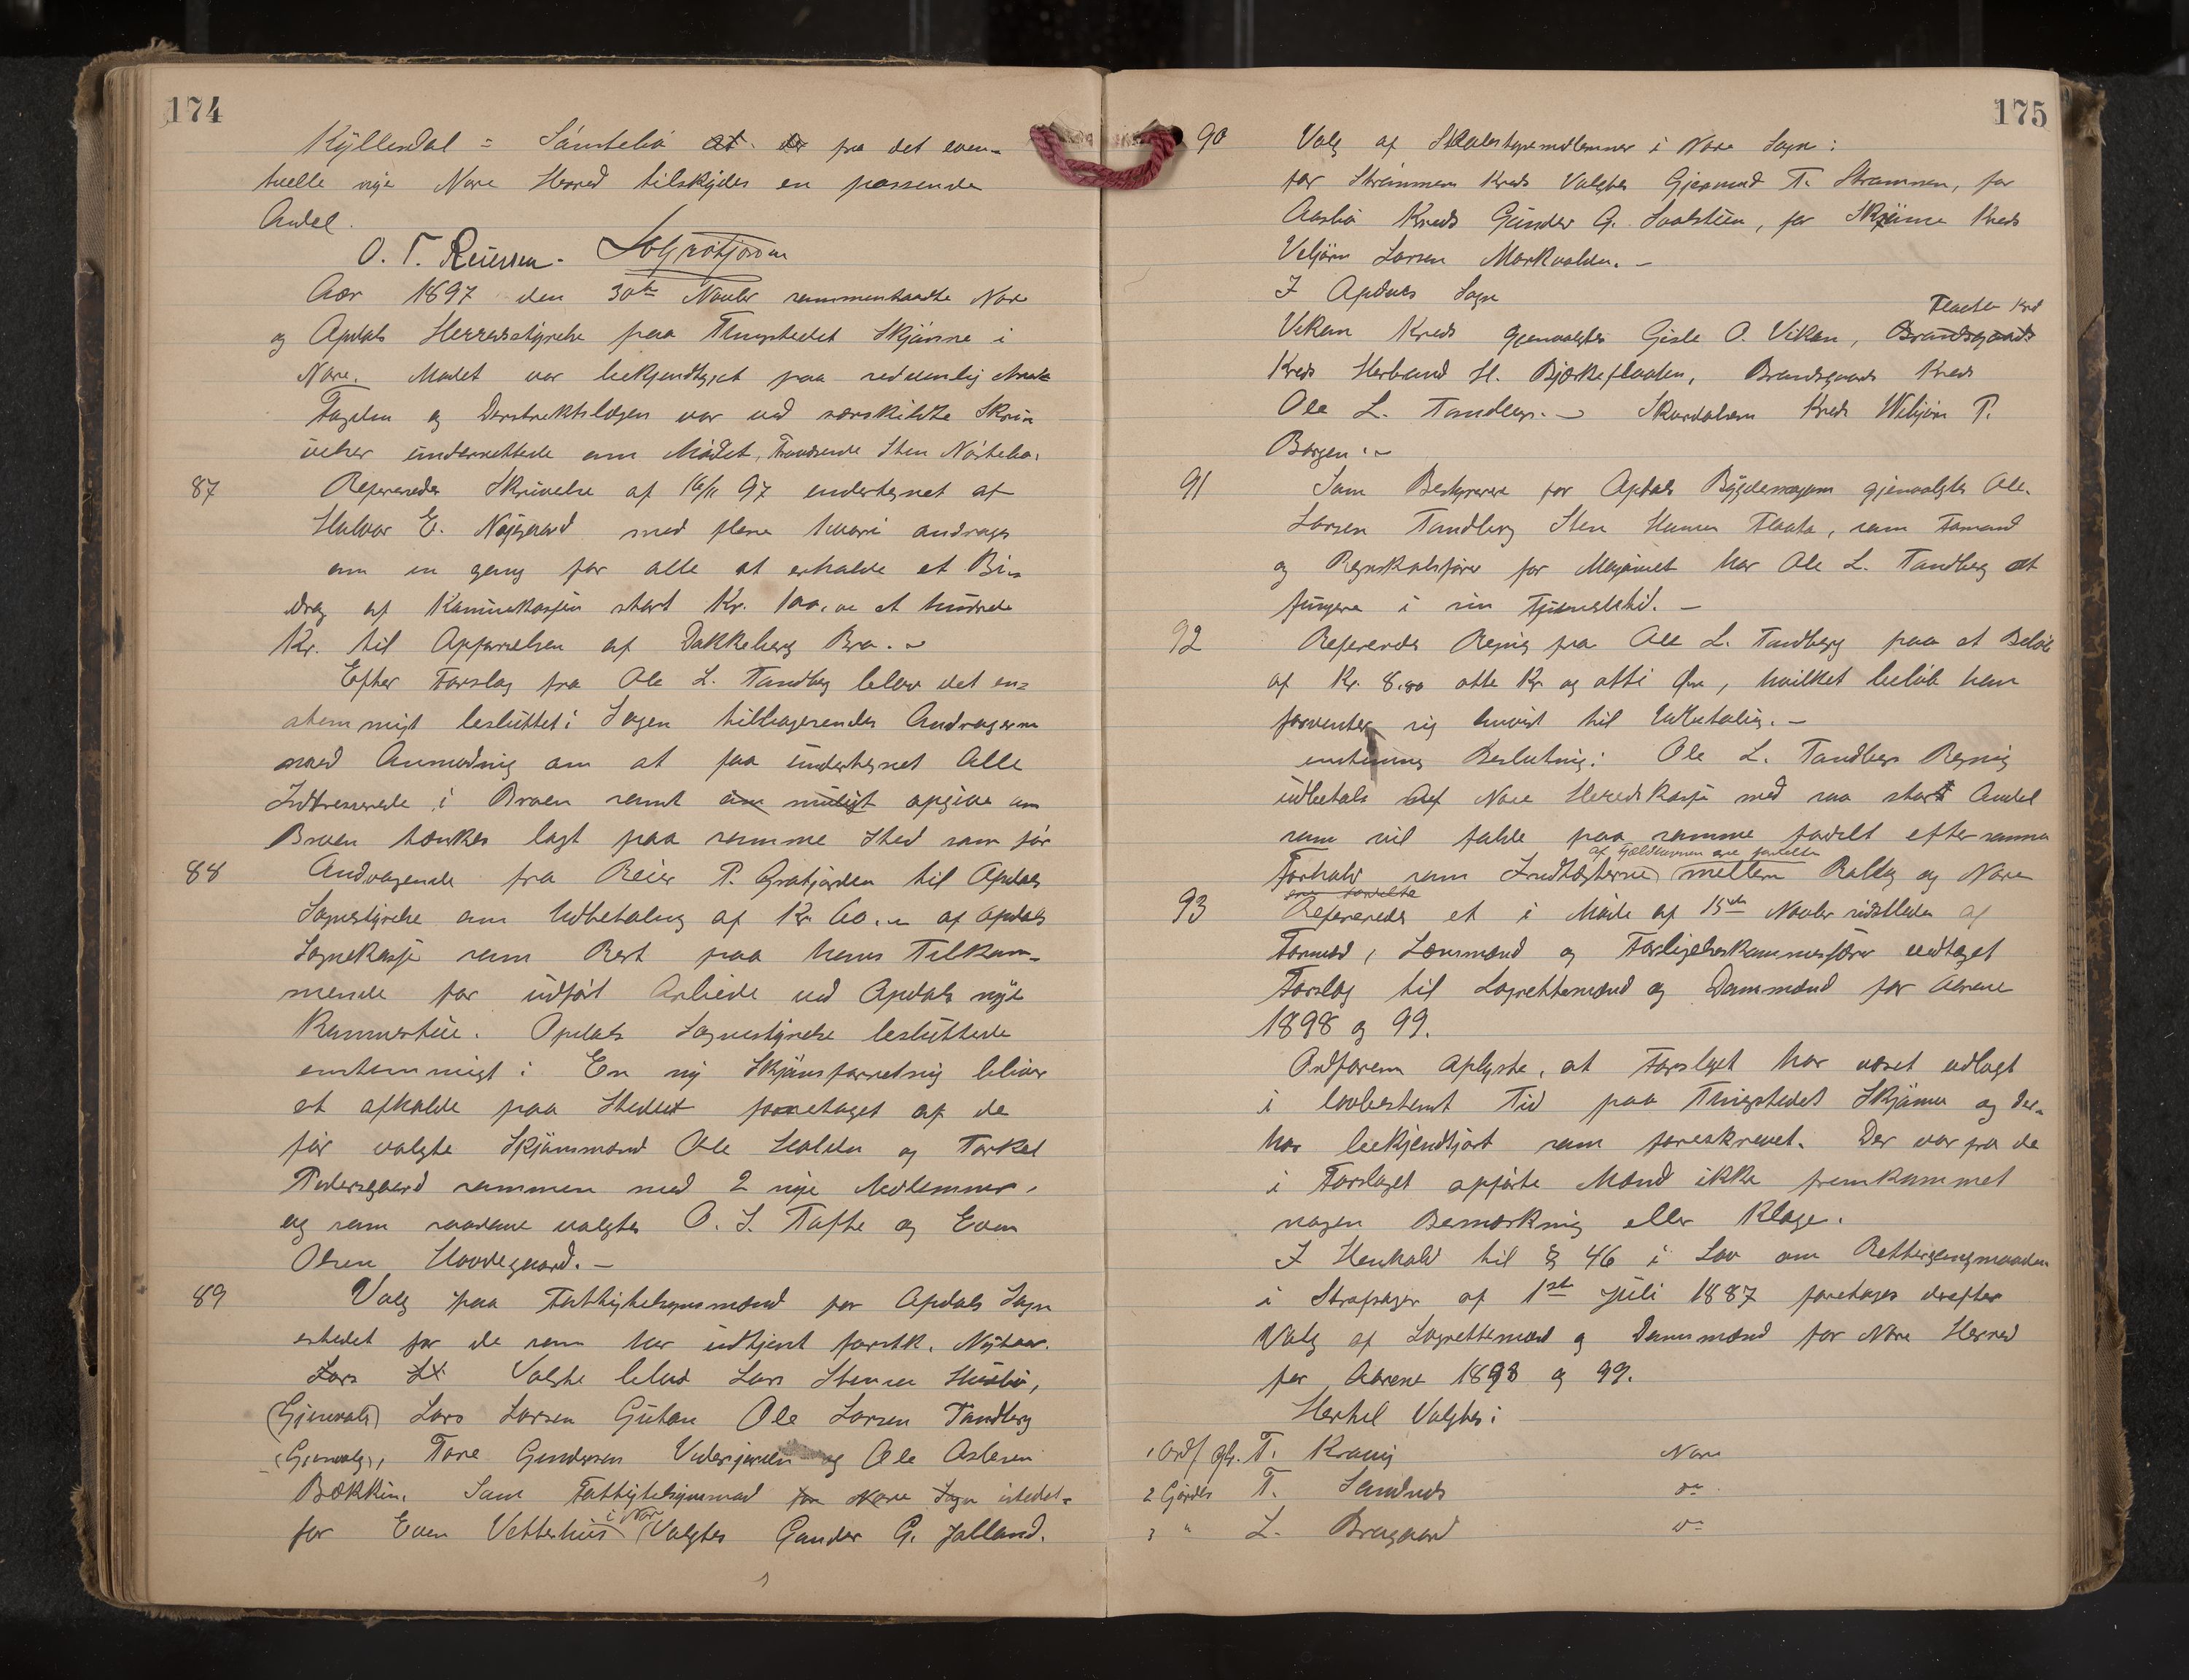 174
Kyllesdal = Sønstebø at der fra det even-
tuelle nye Nore Herred tilskydes en passende
Andel.
O. T. Reiersen.
Aar 1897 den 30te Novbr sammentraadte Nore
og Opdals Herredsstyrelse paa Thingstedet Skjønne i
Nore. Mødet var bekjendtgjort paa sedvanlig
Fogden og Distriktslægen var ved særskildte Skriv
velser underrettede om Mødet, Fraværende Sten Nørstebø.
87 Refereredes Skrivelse af 16/11 97 undertegnet af
Halvor E. Nøjgaard med flere hvori andrages
om en gang for alle at erholde et Bi-
drag af Kommunekassen stort Kr. 100,00 et hundrede
Kr. til Opførelsen af Dakkeberg Bro.
Efter Forslag fra Ole L. Tandberg blev det en-
stemmigt besluttet: Sagen tilbagesendes Andragerne
med Anmodning om at faa undertegnet Alle
Interesserede i Broen samt om muligt opgive om
Broen tænkes lagt paa samme Sted som før
88 Andragende fra Reier P. Grøtjorden til Opdals
Sognestyrelse om Udbetaling af Kr. 60.- af Opdals
Sognekasse som Rest paa hans Tilkom-
mende for udført Arbeide ved Opdals nye
Kommestue. Opdals Sognestyrelse besluttede
enstemmigt: En ny Skjønsforretning bliver
at afholde paa Stedet foretaget af de
før valgte Skjønsmænd Ole Halden og Torkel
Pedersgaard sammen med 2 nye Medlemmer.
og som saadane valgtes O. S. Tofte og Even
Olsen Hovdegaard.-
89 Valg paa Fattigtilsynsmænd for Opdals Sogn
istedet for de som har udtjent førstk. Nytaar.
Lars St Valgte blev Lars Stensen Husbø,
(Gjenvalg) Lars Larsen Gutøen Ole Larsen Tandberg
(Gjenvalg), Tore Gundersen Vidersjorden og Ole Aslesen
Bækkin. Som Fattigtilsynsmand for Nore Sogn istedet-
for Even Vetterhus i Nore Valgtes Gunder G. Jalland.
175
90 Valg af Skolestyremedlemmer i Nore Sogn:
for Strømmen Kreds Valgtes Gjermund T. Strømmen, for
Aasbø Kreds Gunder G. Saalstuen, for Skjønne Kreds
Vebjørn Larsen Markvolden.-
I Opdals Sogn
Flaata Kred
Viken Kreds gjenvalgtes Gisle O. Viken, Brandsgaards
Kreds Herbrand H. Bjørkeflaaten, Brandsgaards Kreds
Ole L. Tandberg.- Skurdalens Kreds Wibjørn P.
Borgen.-
91 Som Bestyrere for Opdals Bygdemagasin gjenvalgtes Ole
Larsen Tandberg Sten Hansen Flaata, som Formand
og Regnskabsfører for Magasinet har Ole L. Tandberg at
fungere i sin Tjenestetid.-
92 Refereredes Regning fra Ole L. Tandberg paa et Beløb
af Kr. 8.80 otte Kr. og otti Øre, hvilket beløb han
forventer sig anvist til Udbetaling.-
enstemmig Beslutning: Ole L. Tandbergs Regning
udbetales af Nore Heredskasse med saa stor Andel
som vil falde paa samme fordelt efter samme
af Gjeldkommunen ere fordelte
Forhold som Indtægterne mellem Rollag og Nore
ere fordelte
93 Refereredes et i Møde af 15de Novbr sidstleden af
Formænd, Lensmænd og Forligelseskommissærer vedtaget
Forslag til Lagrettemænd og Domsmænd for Aarene
1898 og 99.
Ordføreren oplyste, at Forslaget har været udlagt
i lovbestemt Tid paa Thingstedet Skjønne og der-
hos bekjendtgjort som foreskrevet. Der var fra de
i Forslaget opførte Mænd ikke fremkommet
nogen Bemærkning eller Klage.
I Henhold til § 46 i Lov om Rettergangsmaaden
i Strafsager af 1ste Juli 1887 foretoges derefter
Valg af Lagrettemænd og Domsmænd for Nore Herred
for Aarene 1898 og 99.
Hertil Valgtes:
1 T. Kravig Nore
2 Gaardbr T. Sandnes do
3 " L. Bragaard do